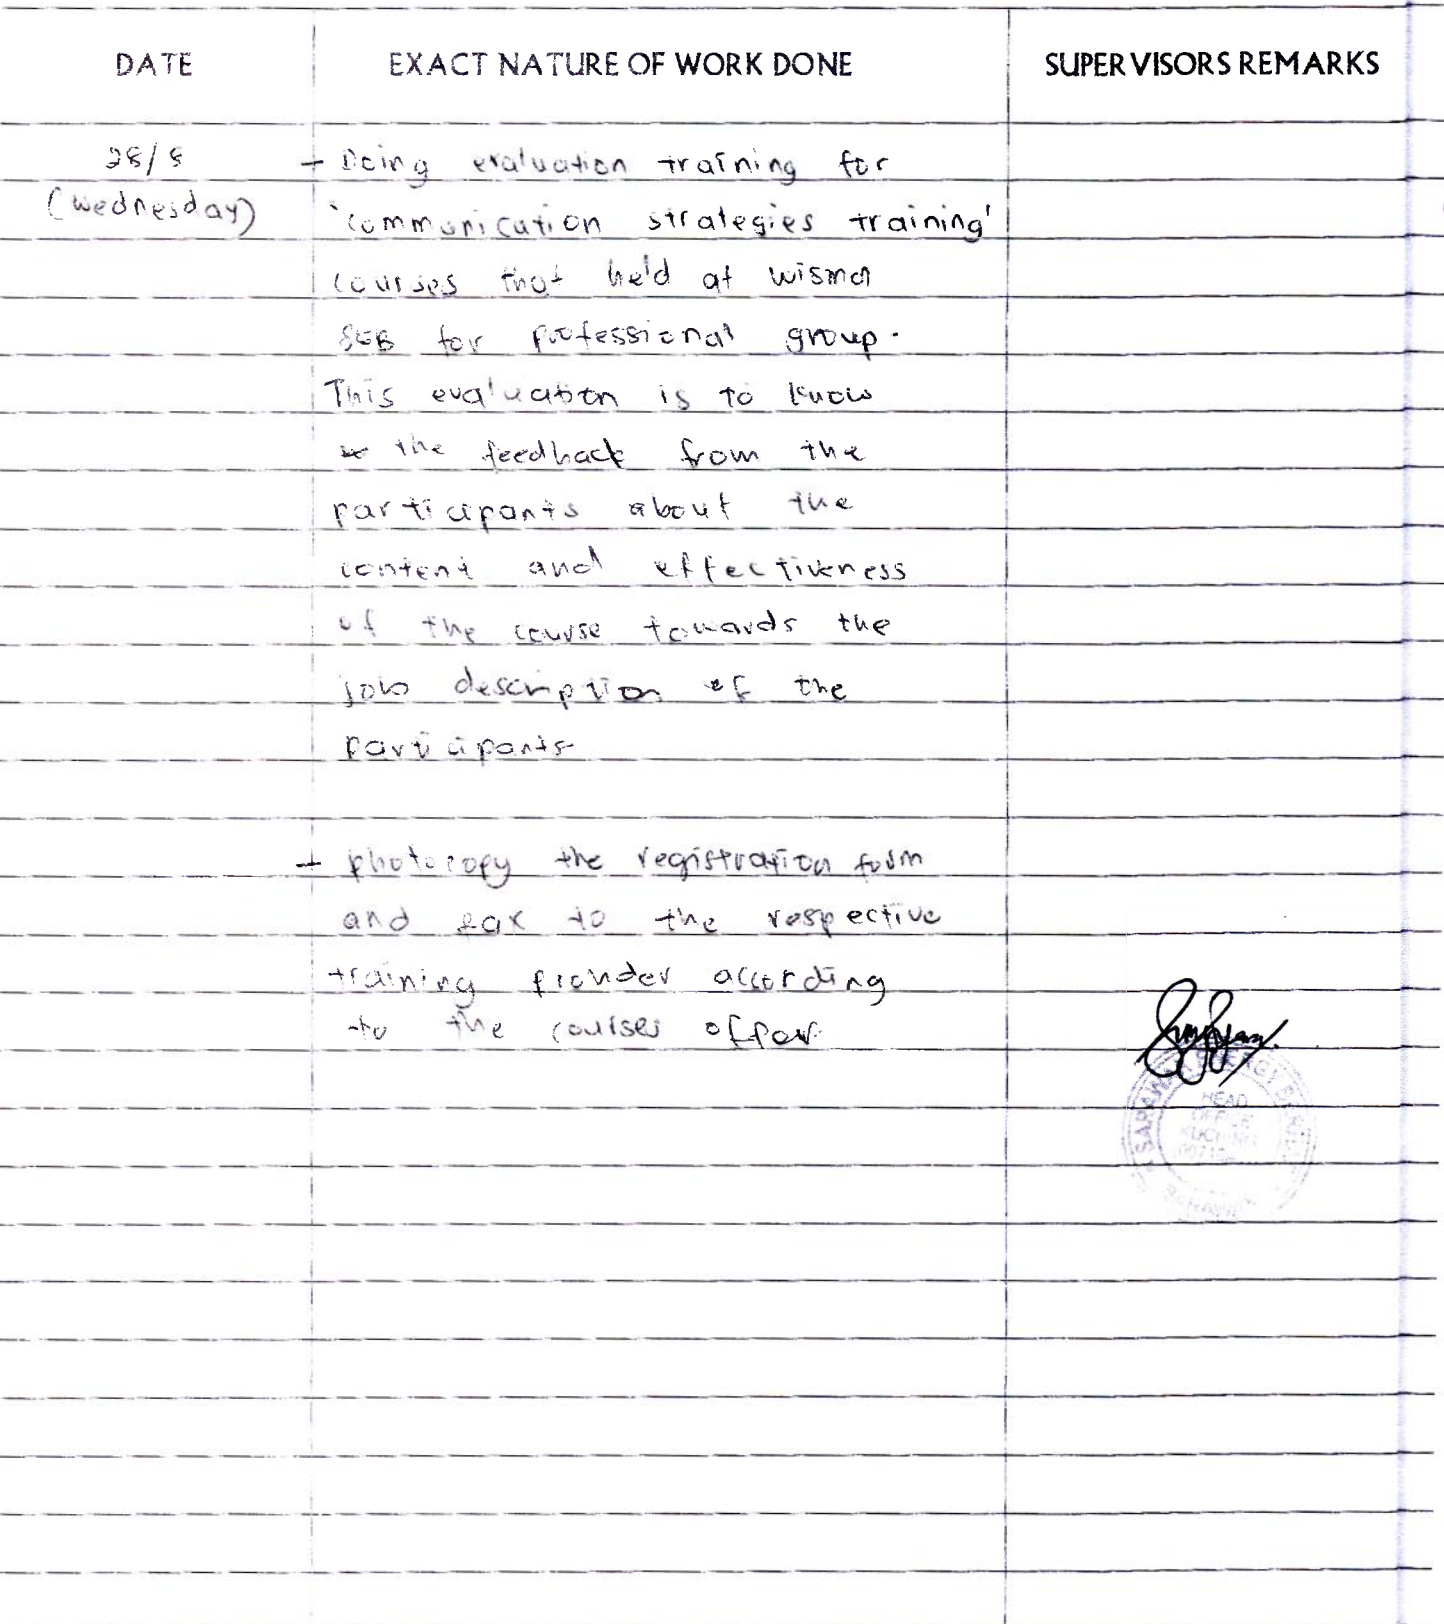 DATE EXACT NATURE OF WORK DONE SUPERVISORS REMARKS
28/8 - Doing evaluation training for
(Wednesday) 'communication strategies training'
courses that held at wisma
SEB for professional group.
This evaluation is to know
the feedback from the
participants about the
content and effectiveness
of the course towards the
job description of the
participants
- photocopy the registration form
and fax to the respective
training provider according
to the courses offer.
SARAWAK ENERGY
HEAD
OFFICE
KUCHING